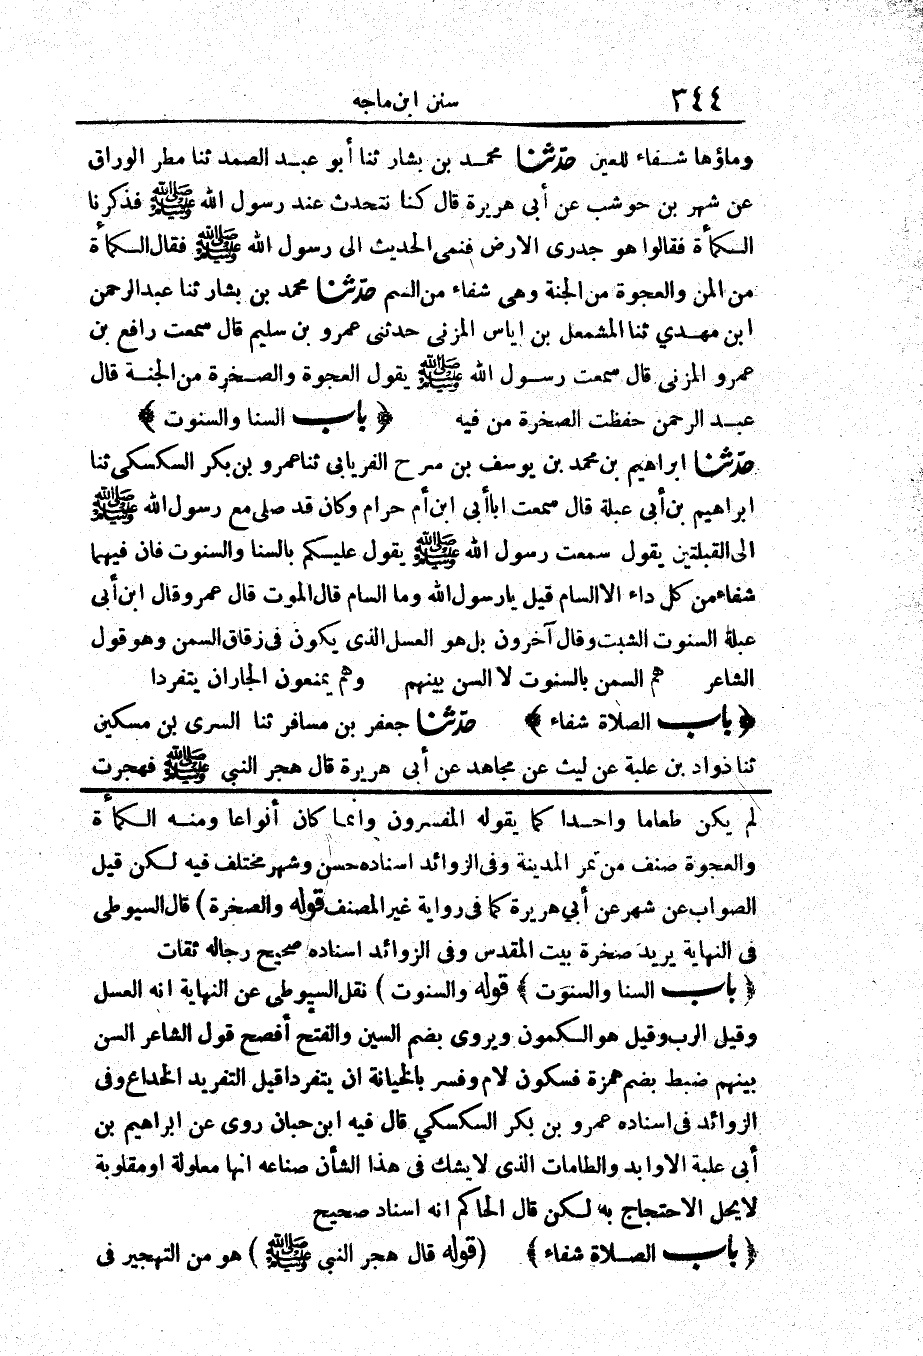 ٣٤٤ سنن ابن ماجه
وماؤها شفاء للعين حدّثنا محمد بن بشار ثنا أبو عبد الصمد ثنا مطر الوراق
عن شهر بن حوشب عن أبى هريرة قال كنا نتحدث عند رسول الله ﷺ فذكرنا
الكمأة فقالوا هو جدرى الارض فنمى الحديث الى رسول الله ﷺ فقال الكمأة
من المن والعجوة من الجنة وهى شفاء من السم حدّثنا محمد بن بشار ثنا عبدالرحمن
ابن مهدي ثنا المشمعل بن اياس المزنى حدثنى عمرو بن سليم قال سمعت رافع بن
عمرو المزنى قال سمعت رسول الله ﷺ يقول العجوة والصخرة من الجنة قال
عبد الرحمن حفظت الصخرة من فيه ﴿ باب السنا والسنوت ﴾
حدّثنا ابراهيم بن محمد بن يوسف بن سرح الفريابى ثنا عمرو بن بكر السكسكى ثنا
ابراهيم بن أبى عبلة قال سمعت اباأبى ابن أم حرام وكان قد صلى مع رسول الله ﷺ
الى القبلتين يقول سمعت رسول الله ﷺ يقول عليكم بالسنا والسنوت فان فيهما
شفاء من كل داء الا السام قيل يارسول الله وما السام قال الموت قال عمرو قال ابن أبى
عبلة السنوت الشبت وقال آخرون بل هو العسل الذى يكون فى زقاق السمن وهو قول
الشاعر هم السمن بالسنوت لا السن بينهم وهم يمنعون الجاران يتفردا
﴿ باب الصلاة شفاء ﴾ حدّثنا جعفر بن مسافر ثنا السرى بن مسكين
ثنا ذواد بن علبة عن ليث عن مجاهد عن أبى هريرة قال هجر النبي ﷺ فهجرت
لم يكن طعاما واحدا كما يقوله المفسرون وانما كان أنواعا ومنه الكمأة
والعجوة صنف من تمر المدينة وفى الزوائد اسناده حسن وشهر مختلف فيه لكن قيل
الصواب عن شهر عن أبي هريرة كما فى رواية غير المصنف قوله والصخرة ) قال السيوطى
فى النهاية يريد صخرة بيت المقدس وفى الزوائد اسناده صحيح رجاله ثقات
﴿ باب السنا والسنوت ﴾ قوله والسنوت ) نقل السيوطى عن النهاية انه العسل
وقيل الرب وقيل هو الكمون ويروى بضم السين والفتح أفصح قول الشاعر السن
بينهم ضبط بضم همزة فسكون لام وفسر بالخيانة ان يتفردا قيل التفريد الخداع وفى
الزوائد فى اسناده عمرو بن بكر السكسكي قال فيه ابن حبان روى عن ابراهيم بن
أبى علبة الاوابد والطامات الذى لا يشك فى هذا الشأن صناعه انها معلولة او مقلوبة
لا يحل الاحتجاج به لكن قال الحاكم انه اسناد صحيح
﴿ باب الصلاة شفاء ﴾ (قوله قال هجر النبي ﷺ ) هو من التهجير فى